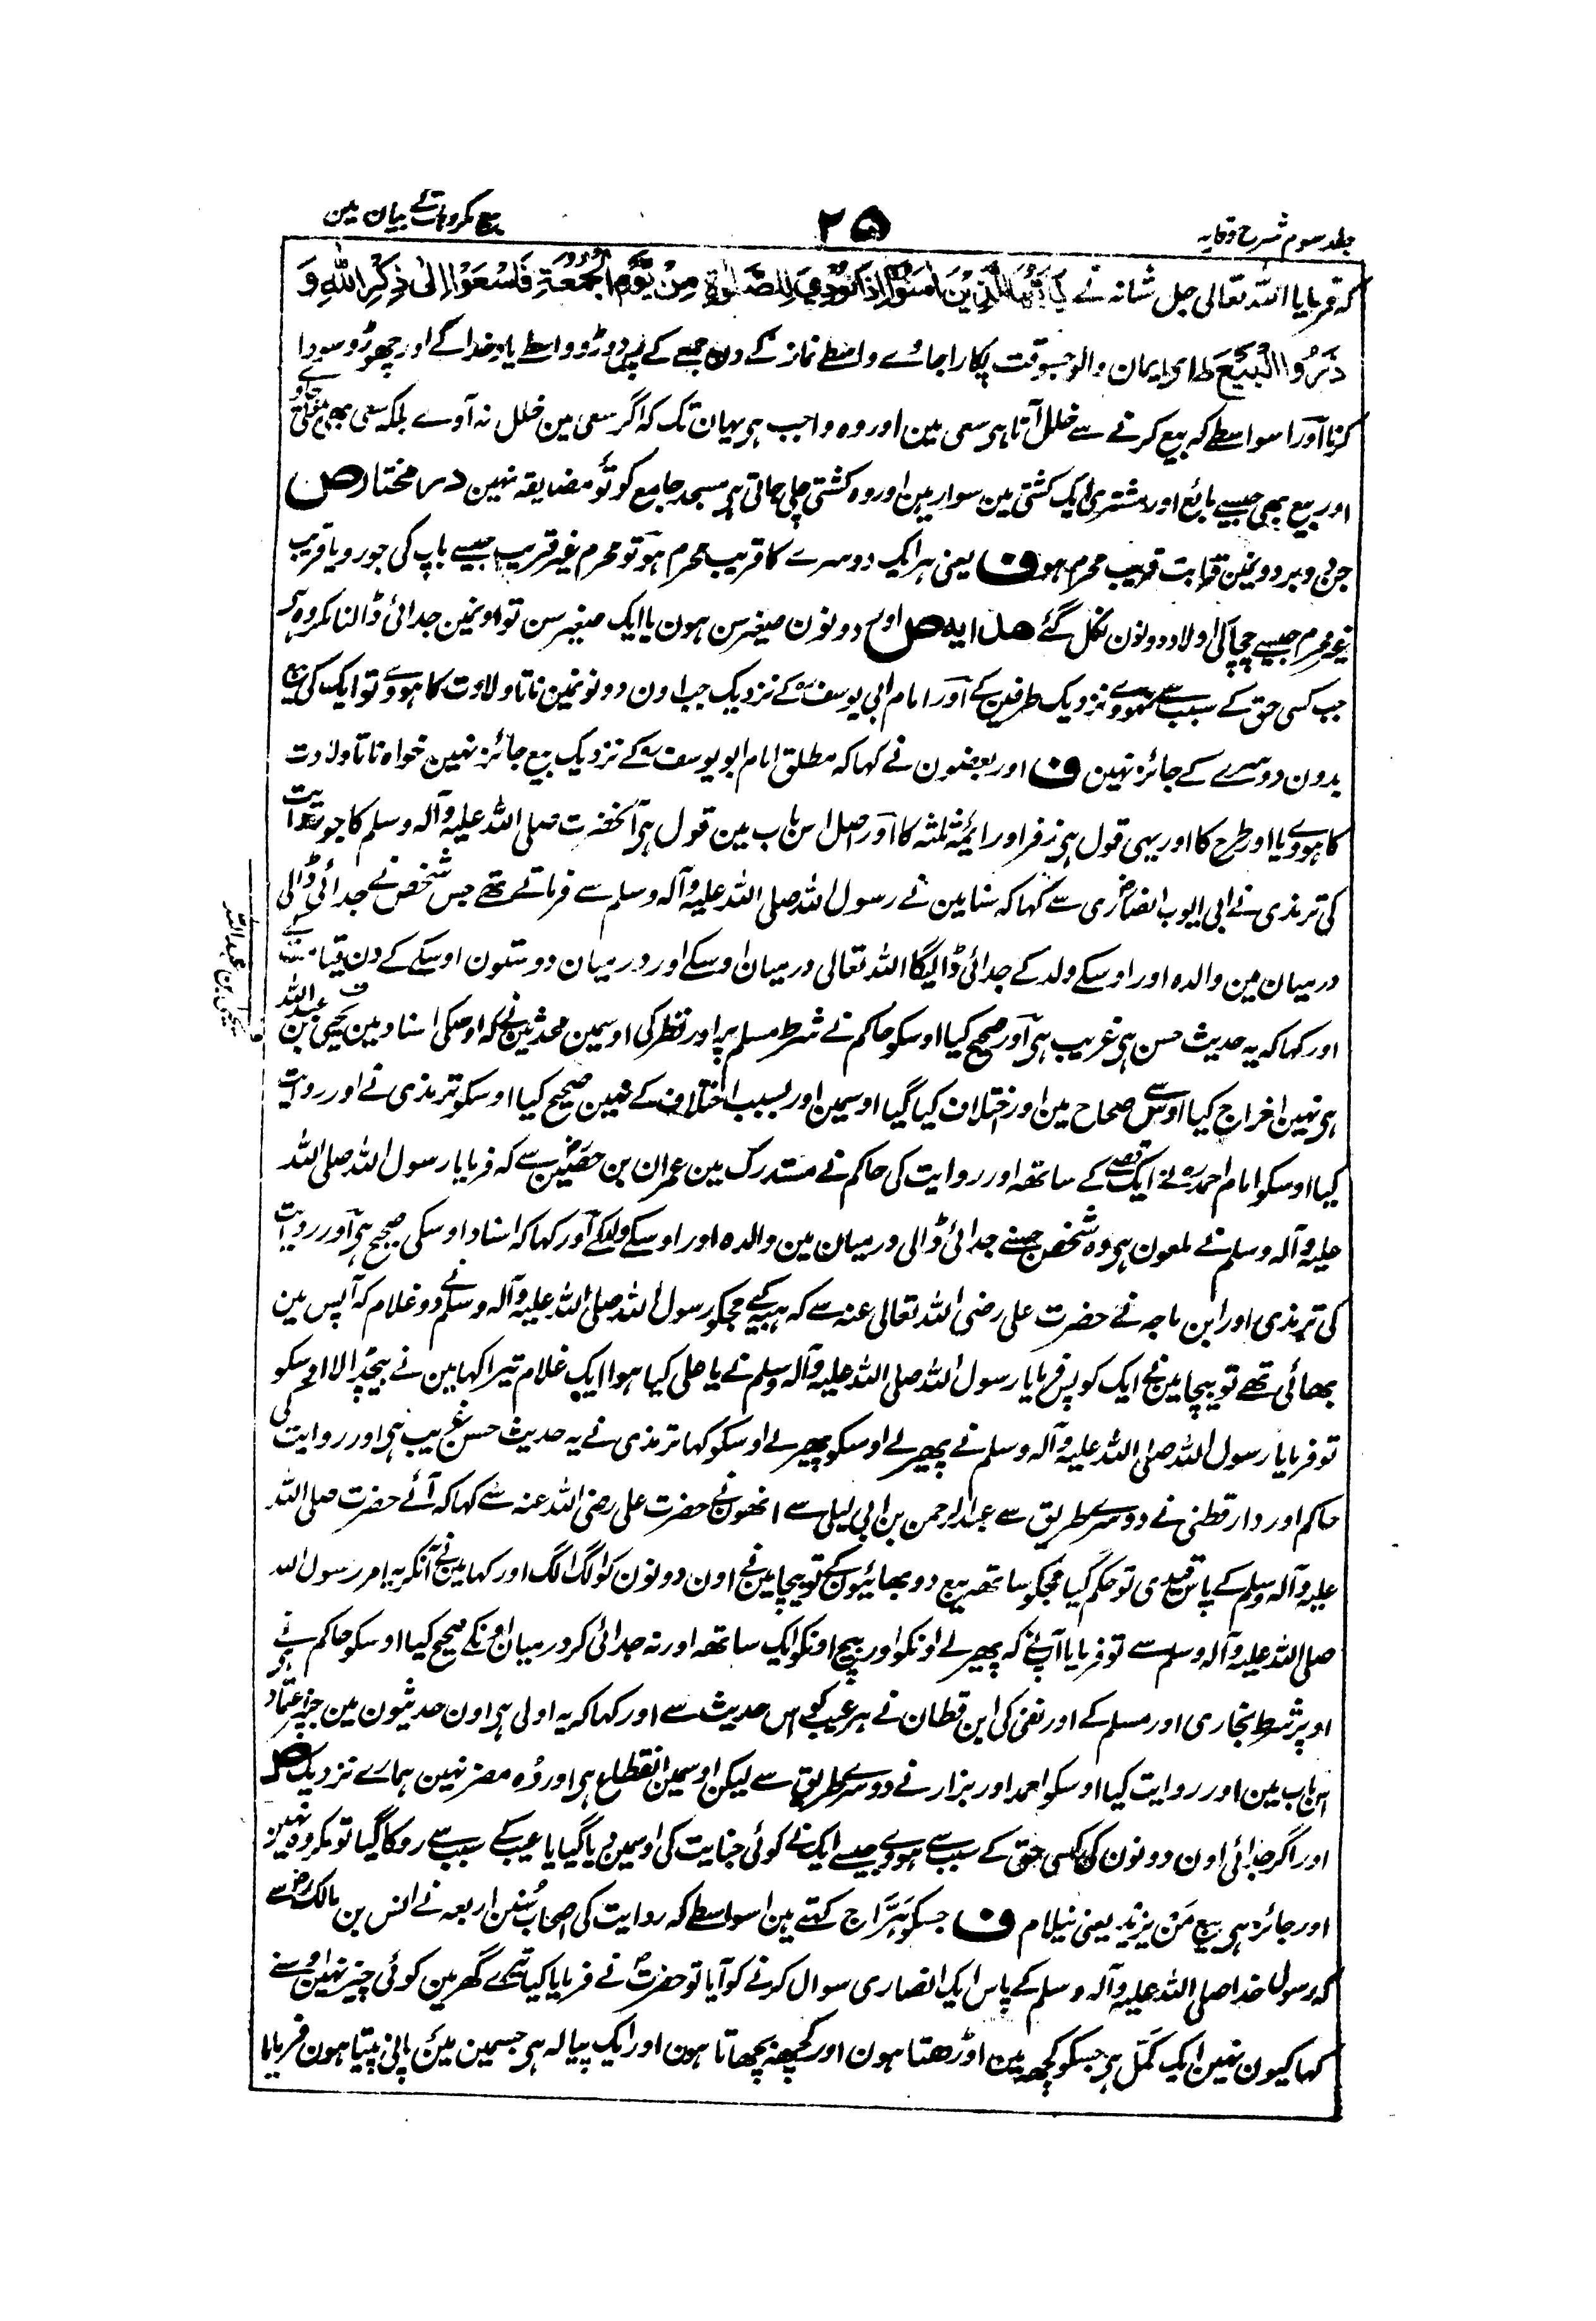 جلد سوم شرح وقایہ
۲۵
بیع مکروہات کے بیان مین
کہ فرمایا اللہ تعالی جل شانہ نے یٰٓاَیُّهَا الَّذِیْنَ اٰمَنُوْٓا اِذَا نُوْدِیَ لِلصَّلٰوةِ مِنْ یَّوْمِ الْجُمُعَةِ فَاسْعَوْا اِلٰی ذِكْرِ اللّٰهِ وَ
ذَرُوا الْبَیْعَ ط ای ایمان والو جسوقت پکارا جاوے واسطے نماز کے دن جمعے کے پس دوڑو واسطے یاد خدا کے اور چھوڑو سودا
کرنا اور اسواسطے کہ بیع کرنے سے خلل آتا ہی سعی مین اور وہ واجب ہی یہان تک کہ اگر سعی مین خلل نہ آوے بلکہ سعی بھی ہوتی جاوے
اور بیع بھی جیسے بائع اور مشتری ایک کشتی مین سوار ہین اور وہ کشتی چلی جاتی ہی مسجد جامع کو تو مضایقہ نہین در مختار ص
جن دو بردونمین قرابت قریب محرم ہو ف یعنی ہر ایک دوسرے کا قریب محرم ہو تو محرم غیر قریب جیسے باپ کی جورو یا قریب
غیر محرم جیسے چچا کی اولاد دونون نکل گئے هدایه ص اور دونون صغیر سن ہون یا ایک صغیر سن تو اونمین جدائی ڈالنا مکروہ ہی
جب کسی حق کے سبب سے نہووے نزدیک طرفین کے اور امام ابی یوسف کے نزدیک جب اون دونونمین ناتا ولادت کا ہووے تو ایک کی بیع
بدون دوسرے کے جائز نہین ف اور بعضون نے کہا کہ مطلق امام ابو یوسف کے نزدیک بیع جائز نہین خواہ ناتا ولادت
کا ہووے یا اور طرح کا اور یہی قول ہی زفر اور ائمہ ثلثہ کا اور اصل اس باب مین قول ہی آنحضرت صلی اللہ علیہ وآلہ وسلم کا جو روایت
کی ترمذی نے ابی ایوب انصاری سے کہا کہ سنا مین نے رسول اللہ صلی اللہ علیہ وآلہ وسلم سے فرماتے تھے جس شخص نے جدائی ڈالی
درمیان مین والدہ اور اوسکے ولد کے جدائی ڈالیگا اللہ تعالی درمیان اوسکے اور درمیان دوستون اوسکے کے دن قیامت کے
اور کہا کہ یہ حدیث حسن ہی غریب ہی اور صحیح کیا اوسکو حاکم نے شرط مسلم پر اور نظر کی اوسمین محدثین نے کہ اوسکی اسناد مین یحیی بن عبداللہ
ہی نہین اخراج کیا اوس سے صحاح مین اور اختلاف کیا گیا اوسمین اور بسبب اختلاف کے نہین صحیح کیا اوسکو ترمذی نے اور روایت
کیا اوسکو امام احمد نے ایک قصے کے ساتھ اور روایت کی حاکم نے مستدرک مین عمران بن حصین سے کہ فرمایا رسول اللہ صلی اللہ
علیہ وآلہ وسلم نے ملعون ہی وہ شخص جسنے جدائی ڈالی درمیان مین والدہ اور اوسکے ولد کے اور کہا کہ اسناد اوسکی صحیح ہی اور روایت
کی ترمذی اور ابن ماجہ نے حضرت علی رضی اللہ تعالی عنہ سے کہ ہبہ کیے مجکو رسول اللہ صلی اللہ علیہ وآلہ وسلم نے دو غلام کہ آپس مین
بھائی تھے تو بیچا مین نے ایک کو پس فرمایا رسول اللہ صلی اللہ علیہ وآلہ وسلم نے یا علی کیا ہوا ایک غلام تیرا کہا مین نے بیچ ڈالا اوسکو
تو فرمایا رسول اللہ صلی اللہ علیہ وآلہ وسلم نے پھیر لے اوسکو پھیر لے اوسکو کہا ترمذی نے یہ حدیث حسن غریب ہی اور روایت کی
حاکم اور دارقطنی نے دوسرے طریق سے عبدالرحمن بن ابی لیلی سے انھون نے حضرت علی رضی اللہ عنہ سے کہا کہ آئے حضرت صلی اللہ
علیہ وآلہ وسلم کے پاس قیدی تو حکم کیا مجکو ساتھ بیع دو بھائیون کے تو بیچا مین نے اون دونون کو الگ الگ اور کہا مین نے آنکر یہ امر رسول اللہ
صلی اللہ علیہ وآلہ وسلم سے تو فرمایا آپنے کہ پھیر لے اونکو اور بیچ اونکو ایک ساتھ اور نہ جدائی کر درمیان اونکے صحیح کیا اوسکو حاکم نے
اوپر شرط بخاری اور مسلم کے اور نفی کی ابن قطان نے ہر عیب کو اس حدیث سے اور کہا کہ یہ اولی ہی اون حدیثون مین جنپر اعتماد ہی
اس باب مین اور روایت کیا اوسکو احمد اور بزار نے دوسرے طریق سے لیکن اوسمین انقطاع ہی اور وہ مضر نہین ہمارے نزدیک ص
اور اگر جدائی اون دونون کی کسی حق کے سبب سے ہووے جیسے ایک نے کوئی جنایت کی اوسمین دیا گیا یا عیب کے سبب سے روکا گیا تو مکروہ نہین
اور جائز ہی بیع مَنْ یَزِیْد یعنی نیلام ف جسکو ہَرَّاج کہتے ہین اسواسطے کہ روایت کی اصحاب سنن اربعہ نے انس بن مالک سے
کہ رسول خدا صلی اللہ علیہ وآلہ وسلم کے پاس ایک انصاری سوال کرنے کو آیا تو حضرت نے فرمایا کیا تیرے گھر مین کوئی چیز نہین اوسنے
کہا کیون نہین ایک کمّل ہی جسکو کچھ مین اوڑھتا ہون اور کچھ بچھاتا ہون اور ایک پیالہ ہی جسمین مین پانی پیتا ہون فرمایا
یحیی بن عبداللہ